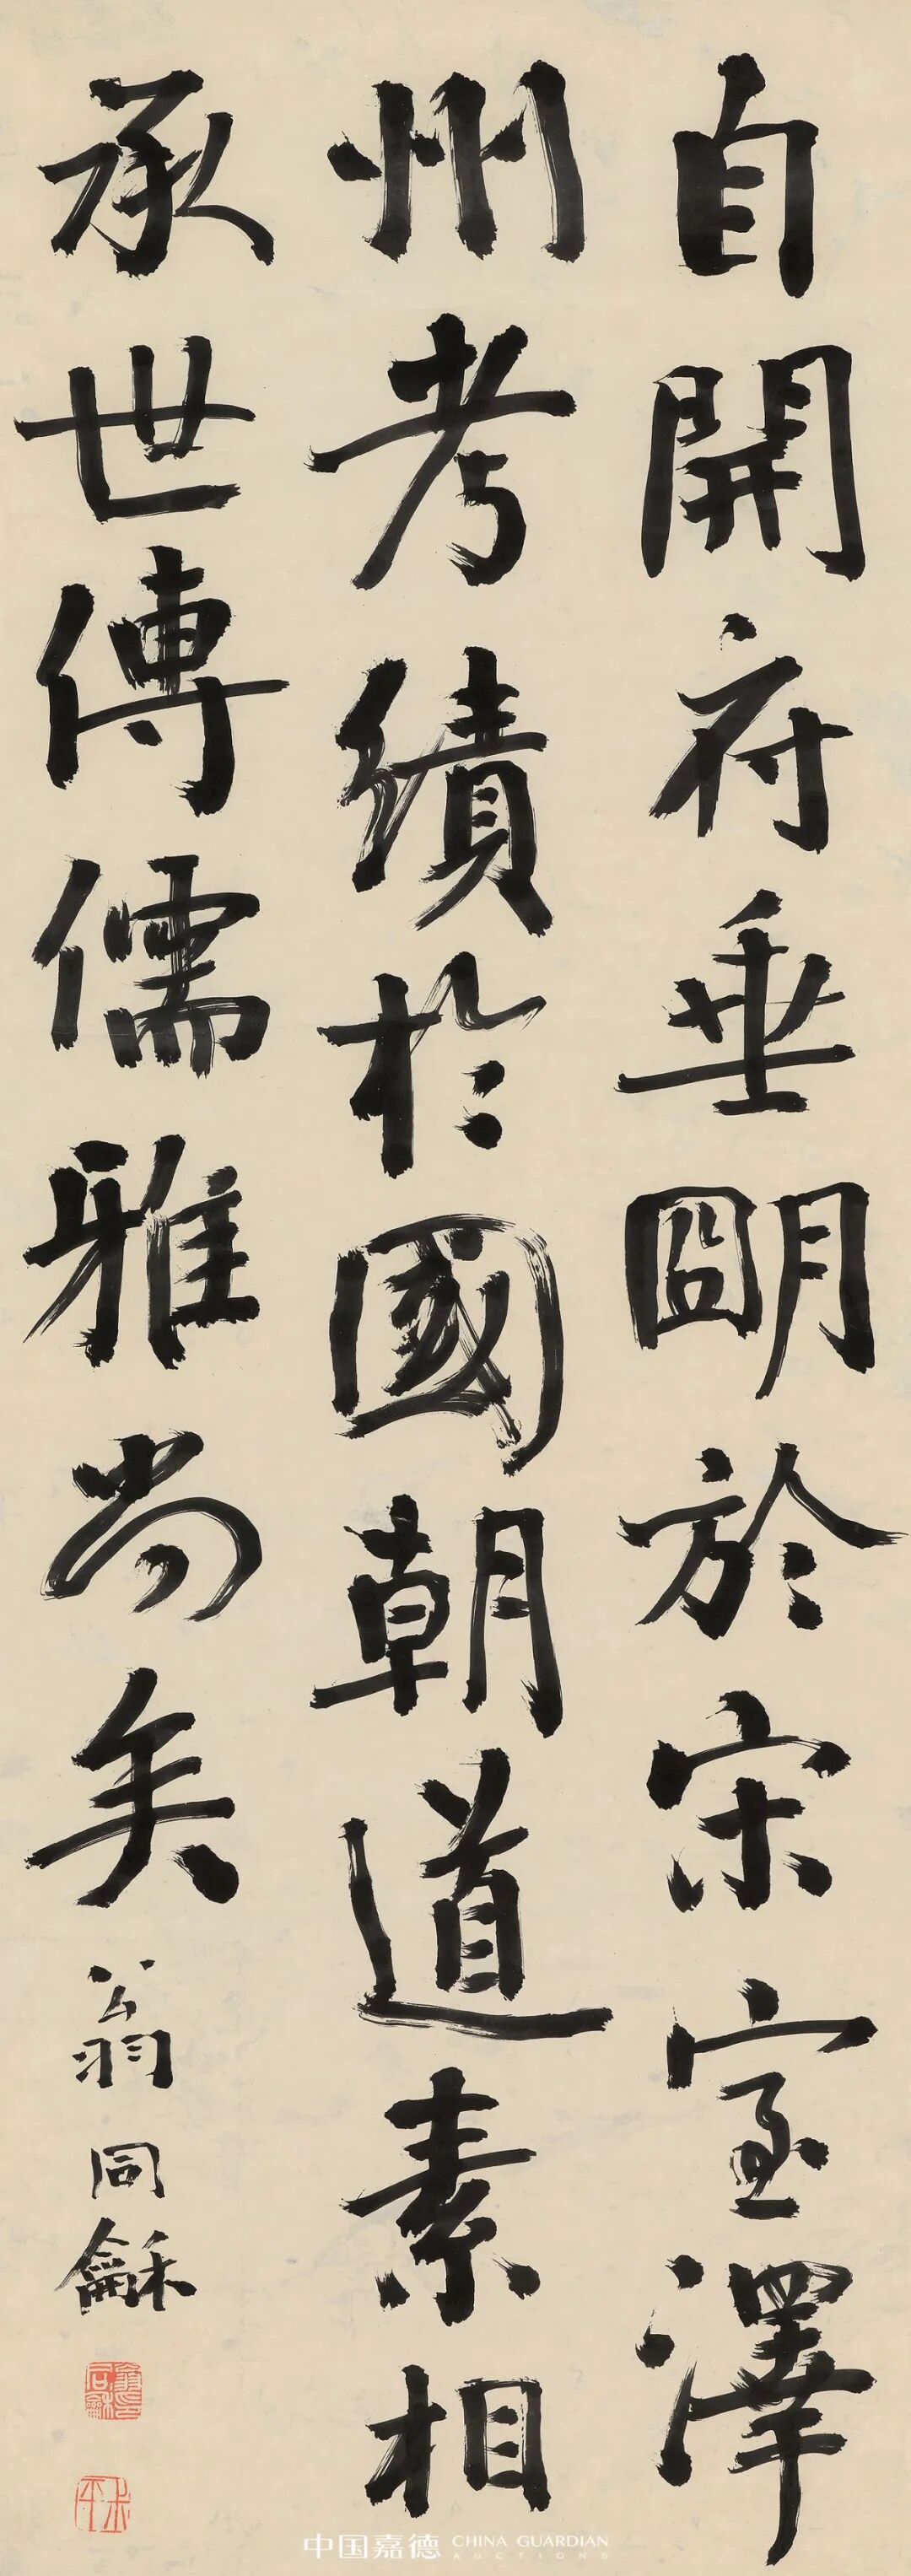 自開府垂朙於宋室澤
州考績於國朝道素相
承世傳儒雅尚矣
翁同龢
翁同龢印
叔平
中国嘉德 CHINA GUARDIAN
AUCTIONS